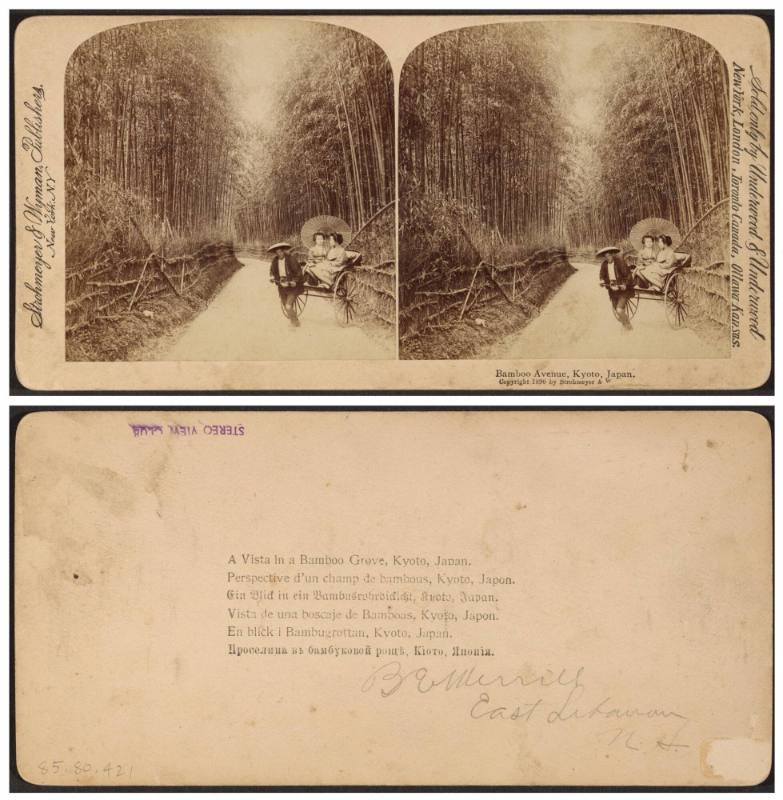 Strohmeyer & Wyman, Publishers,
New York, N.Y.
Sold only by Underwood & Underwood
New York, London, Toronto-Canada, Ottawa-Kansas.
Bamboo Avenue, Kyoto, Japan.
Copyright 1896 by Strohmeyer & W
STEREO VIEW CLUB
A Vista in a Bamboo Grove, Kyoto, Japan.
Perspective d'un champ de bambous, Kyoto, Japon.
Ein Blick in ein Bambusrohrdickicht, Kyoto, Japan.
Vista de una boscaje de Bamboas, Kyoto, Japon.
En blick i Bambugrottan, Kyoto, Japan.
Проселина въ бамбуковой рощѣ, Кіото, Японія.
B E Merrill
East Lebanon
N. H.
85.80.421